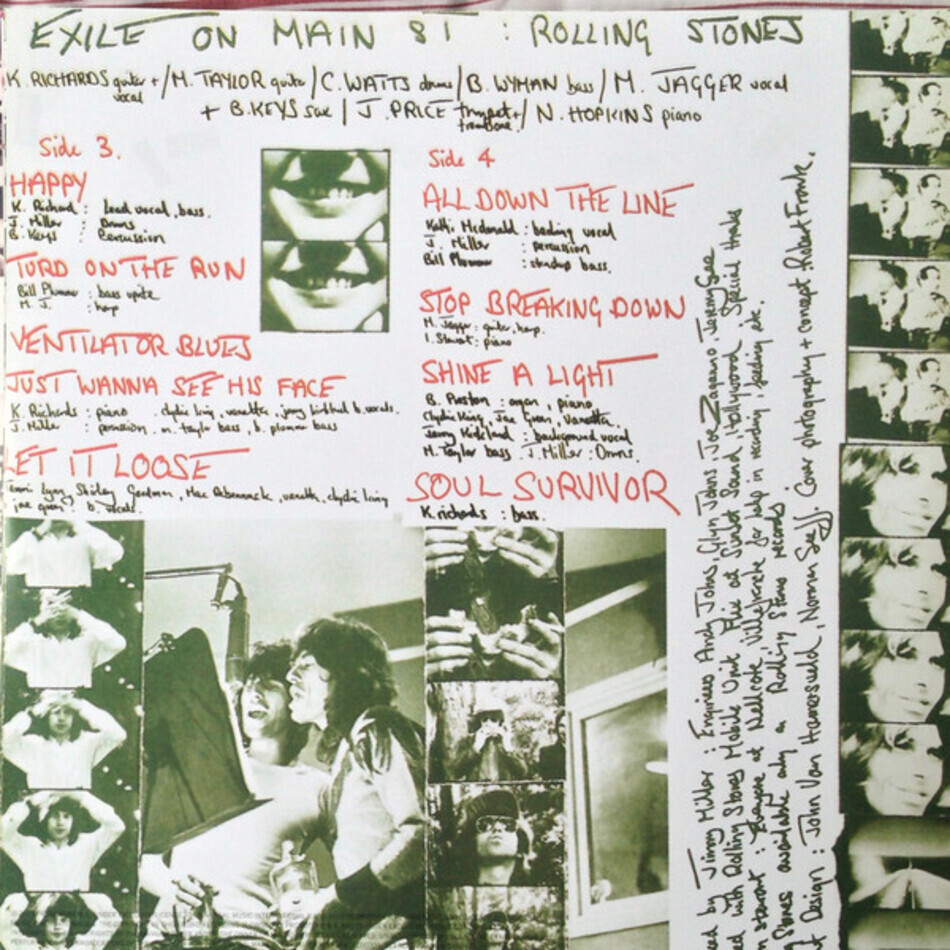 EXILE ON MAIN ST : ROLLING STONES
K. RICHARDS guitar + vocal / M. TAYLOR guitar / C. WATTS drums / B. WYMAN bass / M. JAGGER vocal
+ B. KEYS sax / J. PRICE trumpet + trombone / N. HOPKINS piano
Side 3.
HAPPY
K. Richard : lead vocal, bass.
J. Miller : Drums
B. Keys : Percussion
TURD ON THE RUN
Bill Plummer : bass
M. J. : harp
VENTILATOR BLUES
JUST WANNA SEE HIS FACE
K. Richards : piano . clydie king, vanetta, jerry kirkland b. vocals.
J. Miller : percussion . m. taylor bass, b. plummer bass
LET IT LOOSE
Shirley Goodman, Mac Rebennack, vanetta, clydie king
joe green : b. vocals.
Side 4
ALL DOWN THE LINE
Kathi Mcdonald : backing vocal
J. Miller : percussion
Bill Plummer : standup bass.
STOP BREAKING DOWN
M. Jagger : guitar, harp.
I. Stewart : piano
SHINE A LIGHT
B. Preston : organ, piano
Clydie King, Joe Green, Vanetta,
Jerry Kirkland : background vocal
M. Taylor bass . J. Miller : Drums.
SOUL SURVIVOR
K. richards : bass.
by Jimmy Miller : Engineers Andy Johns, Glyn Johns, Joe Zagarino, Jeremy Gee
with Rolling Stones Mobile Unit Plus at Sunset Sound, Hollywood. Special thanks
stewart : Everyone at Nellcote, Villefranche for help in recording, feeding etc.
Stones available only on Rolling Stones records
Design : John Van Hamersveld, Norman Seeff. Cover photography + concept Robert Frank.